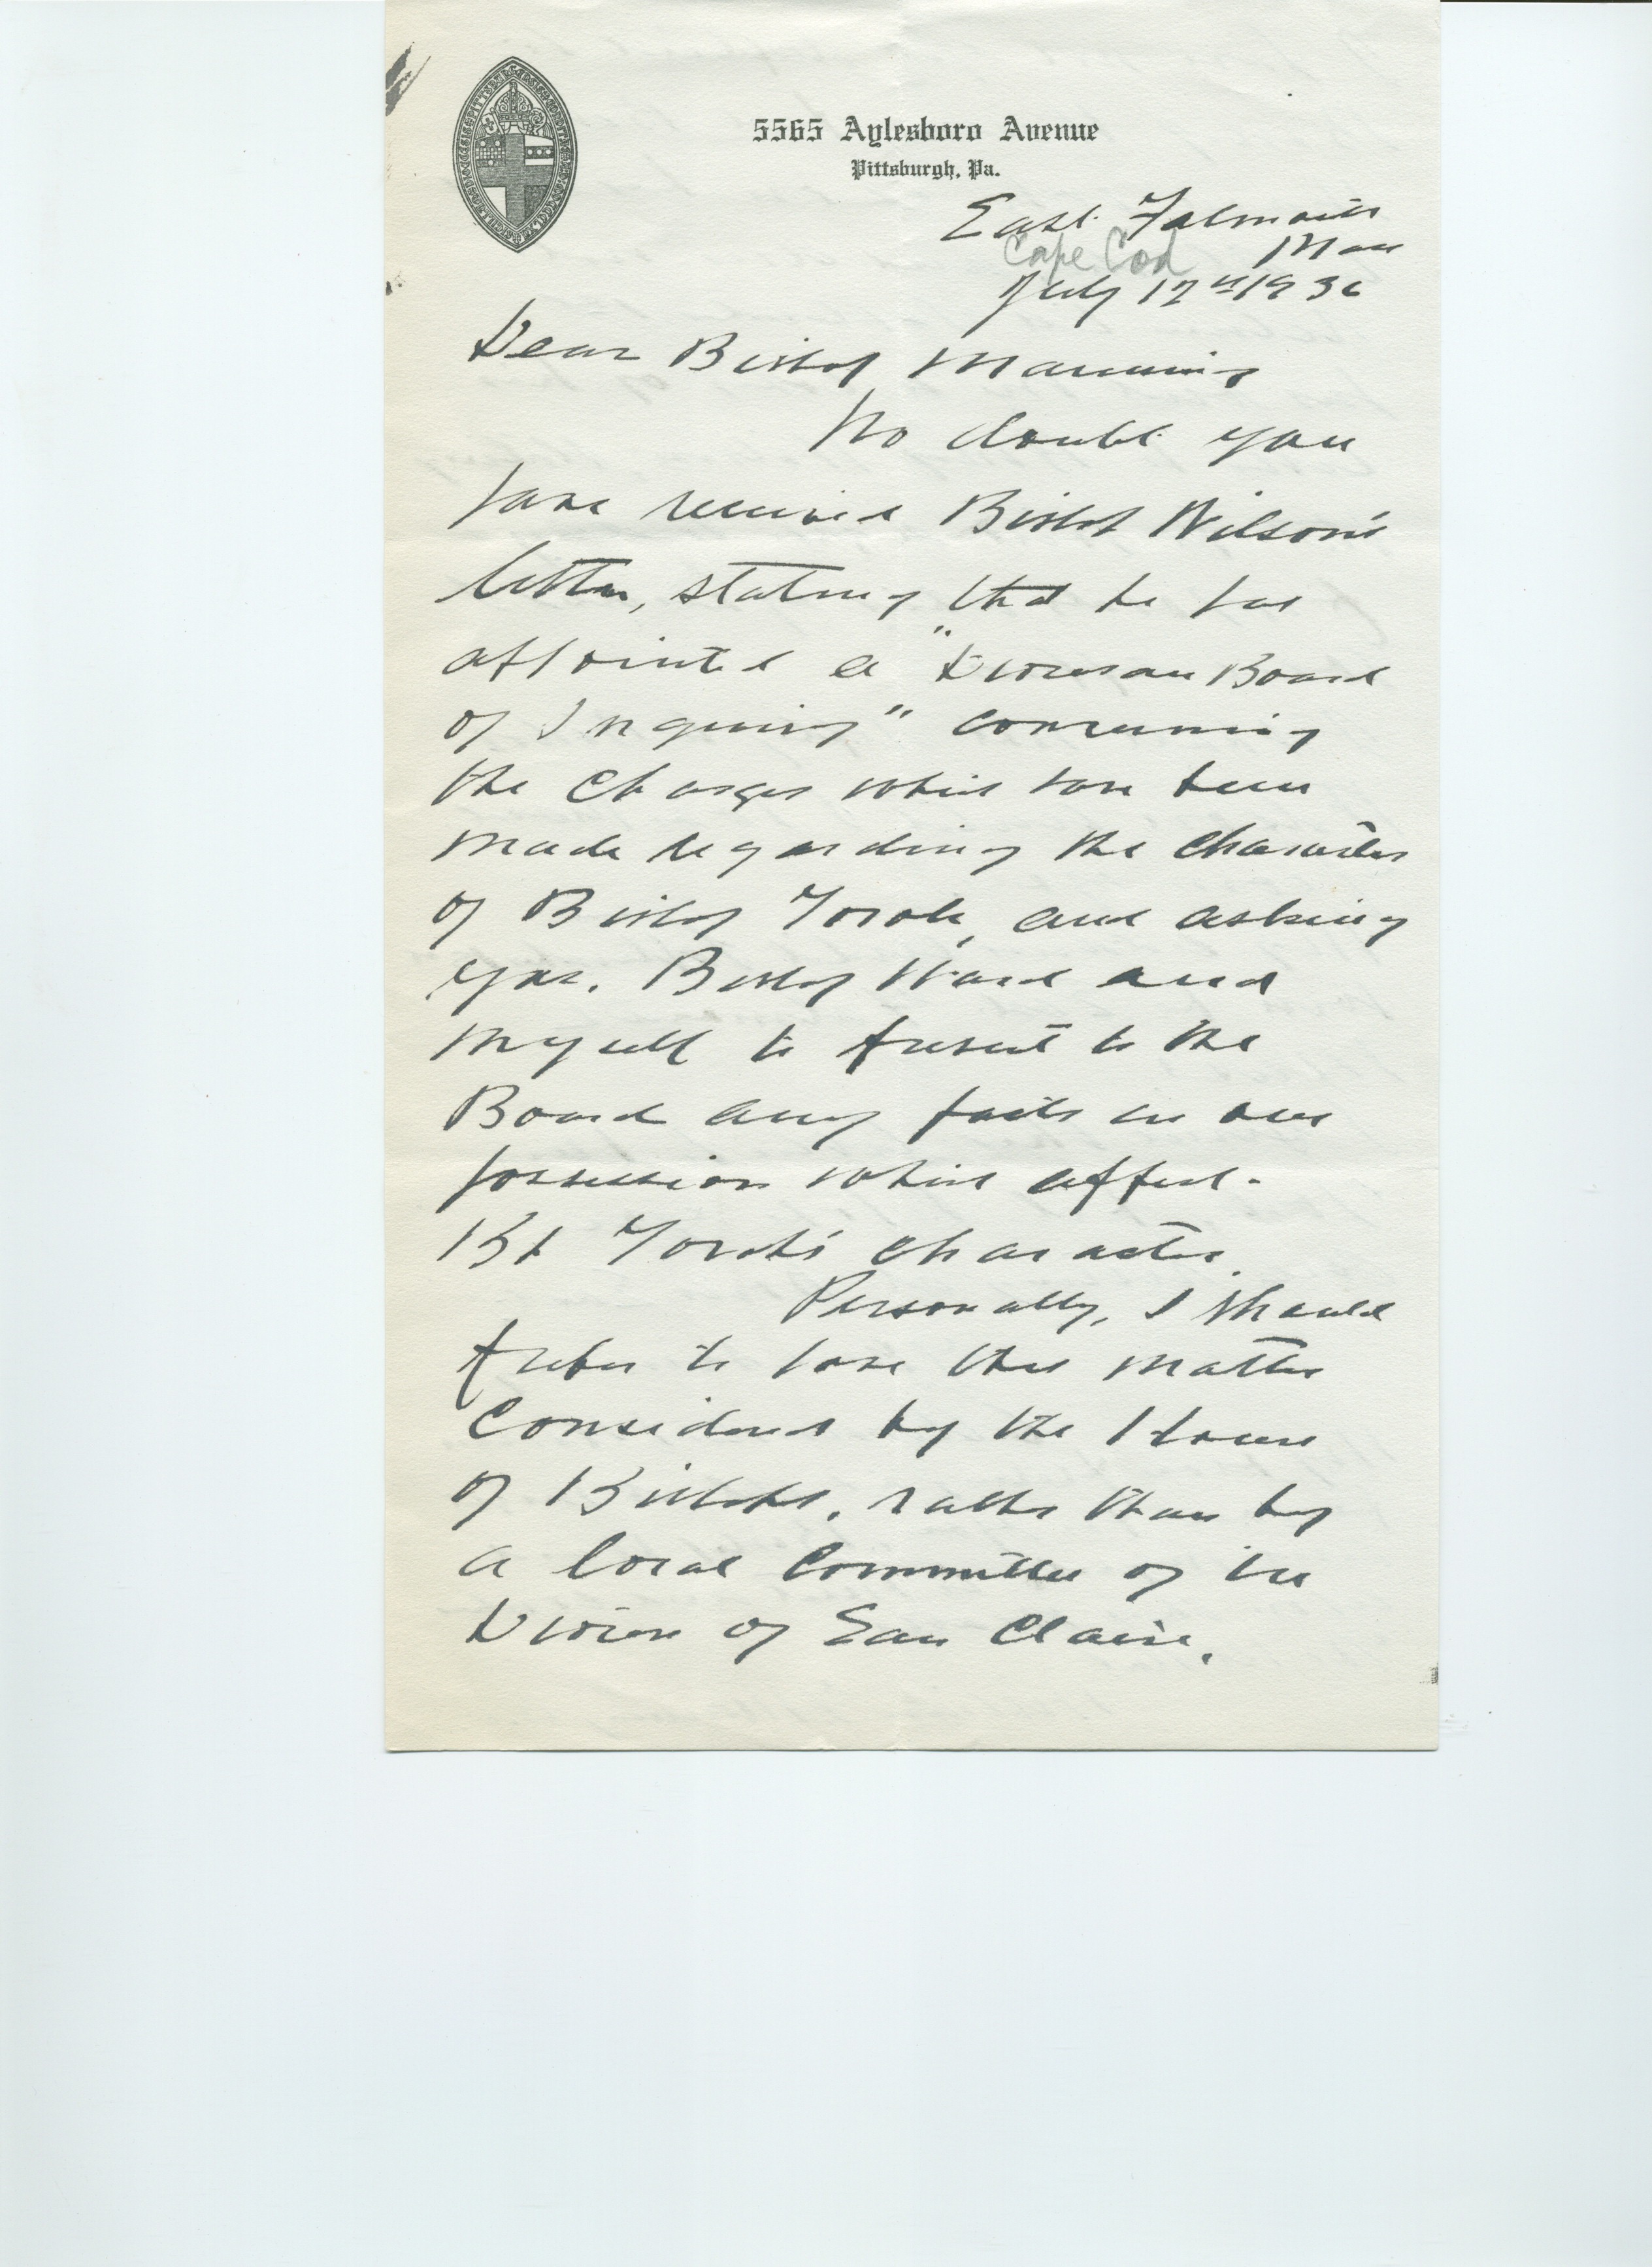 5565 Aylesboro Avenue
Pittsburgh, Pa.
East Falmouth
Mass
Cape Cod
July 12th 1936
Dear Bishop Manning
No doubt you
have received Bishop Wilson's
letter, stating that he has
appointed a "Diocesan Board
of Inquiry" concerning
the charges which have been
made regarding the character
of Bishop Torok, and asking
you, Bishop Ward and
myself to present to the
Board any facts in our
possession which affect
Bp Torok's character.
Personally, I should
prefer to have this matter
considered by the House
of Bishops, rather than by
a local committee of the
Diocese of Eau Claire.